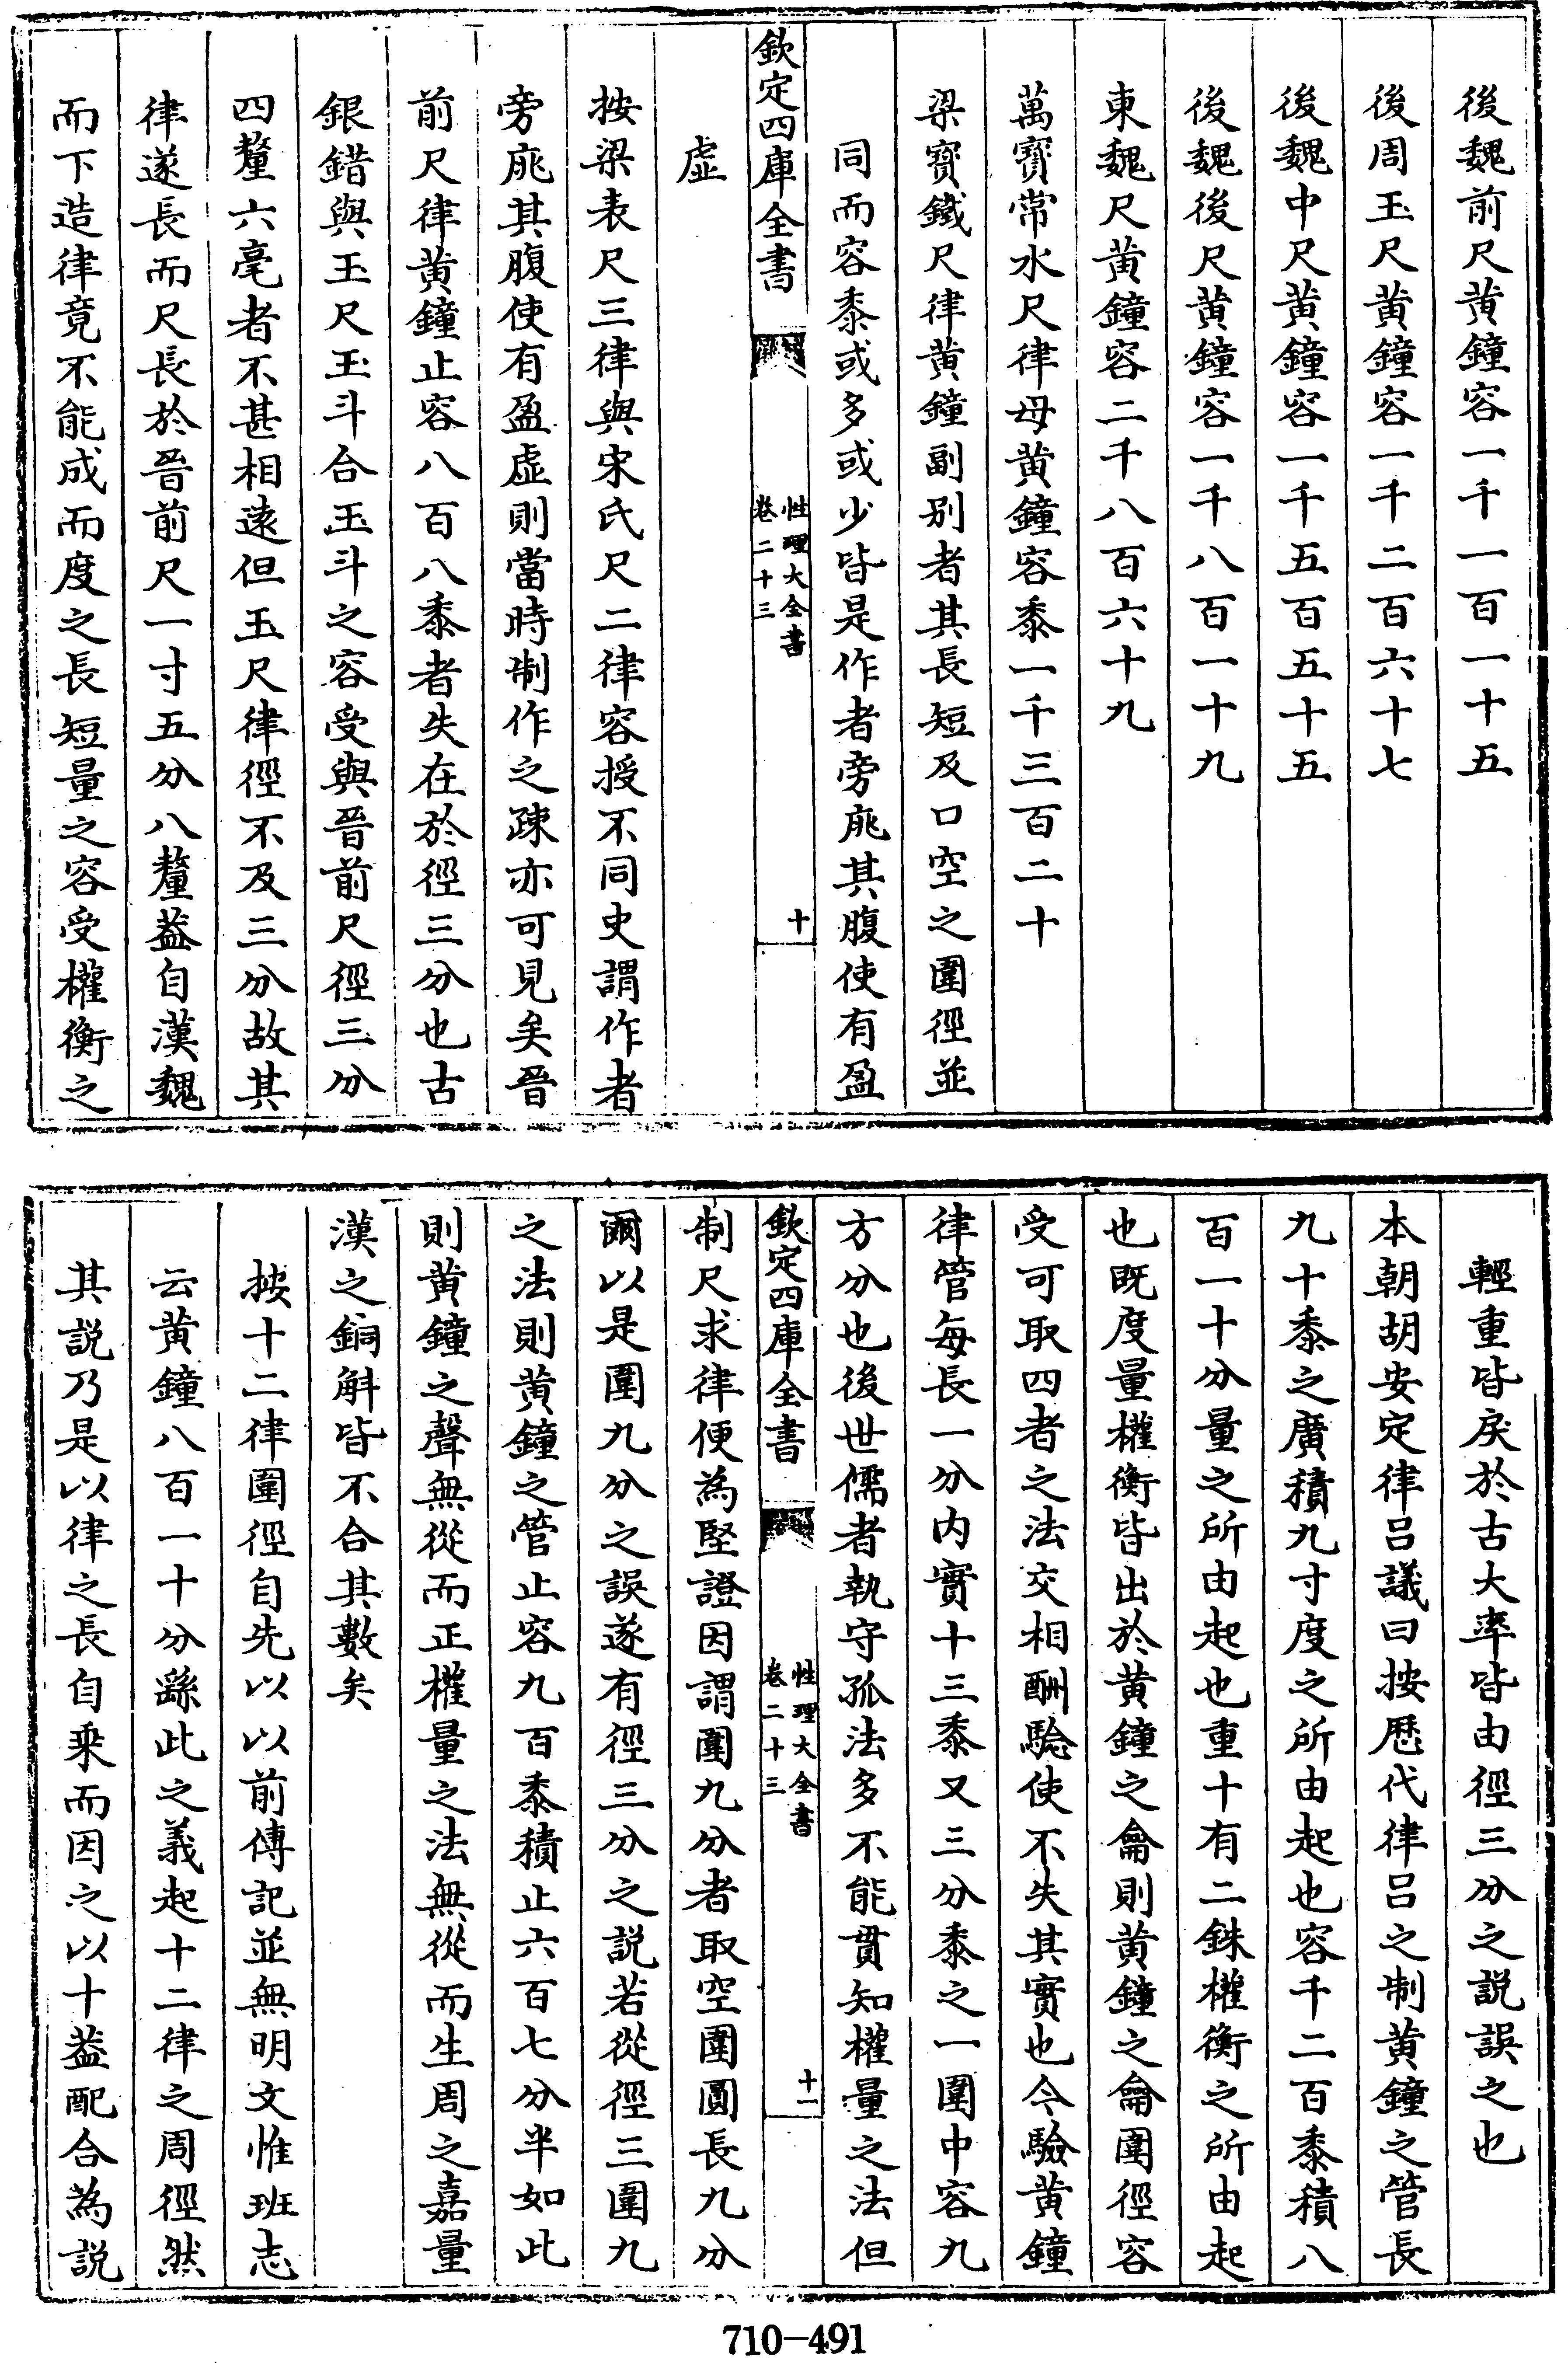 後魏前尺黃鐘容一千一百一十五
後周玉尺黃鐘容一千二百六十七
後魏中尺黃鐘容一千五百五十五
後魏後尺黃鐘容一千八百一十九
東魏尺黃鐘容二千八百六十九
萬寳常水尺律母黃鐘容黍一千三百二十
梁寳鐵尺律黃鐘副别者其長短及口空之圍徑並
同而容黍或多或少皆是作者旁庣其腹使有盈
欽定四庫全書
性理大全書
卷二十三
十
虛
按梁表尺三律與宋氏尺二律容授不同史謂作者
旁庣其腹使有盈虛則當時制作之疎亦可見矣晉
前尺律黃鐘止容八百八黍者失在於徑三分也古
銀錯與玉尺玉斗合玉斗之容受與晉前尺徑三分
四釐六毫者不甚相逺但玉尺律徑不及三分故其
律遂長而尺長於晉前尺一寸五分八釐葢自漢魏
而下造律竟不能成而度之長短量之容受權衡之
輕重皆戾於古大率皆由徑三分之説誤之也
本朝胡安定律吕議曰按歷代律吕之制黃鐘之管長
九十黍之廣積九寸度之所由起也容千二百黍積八
百一十分量之所由起也重十有二銖權衡之所由起
也既度量權衡皆出於黃鐘之龠則黃鐘之龠圍徑容
受可取四者之法交相酬騐使不失其實也今驗黃鐘
律管每長一分内實十三黍又三分黍之一圍中容九
方分也後世儒者執守孤法多不能貫知權量之法但
欽定四庫全書
性理大全書
卷二十三
十一
制尺求律便為堅證因謂圍九分者取空圍圓長九分
爾以是圍九分之誤遂有徑三分之説若從徑三圍九
之法則黃鐘之管止容九百黍積止六百七分半如此
則黃鐘之聲無從而正權量之法無從而生周之嘉量
漢之銅斛皆不合其數矣
按十二律圍徑自先以以前傳記並無明文惟班志
云黃鐘八百一十分繇此之義起十二律之周徑然
其説乃是以律之長自乘而因之以十葢配合為説
710-491